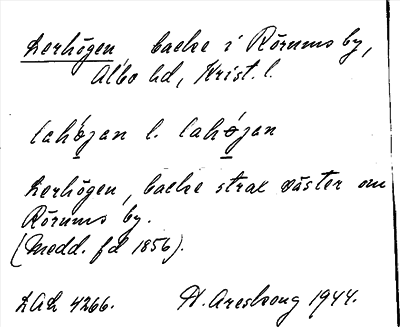 Lerhögen, backe i Rörums by,
Albo hd, Krist. l.
lahøjan l. lahǿjan
Lerhögen, backe strax väster om
Rörums by.
(Medd. fd 1856).
LAL 4266. A. Areskoug 1944.